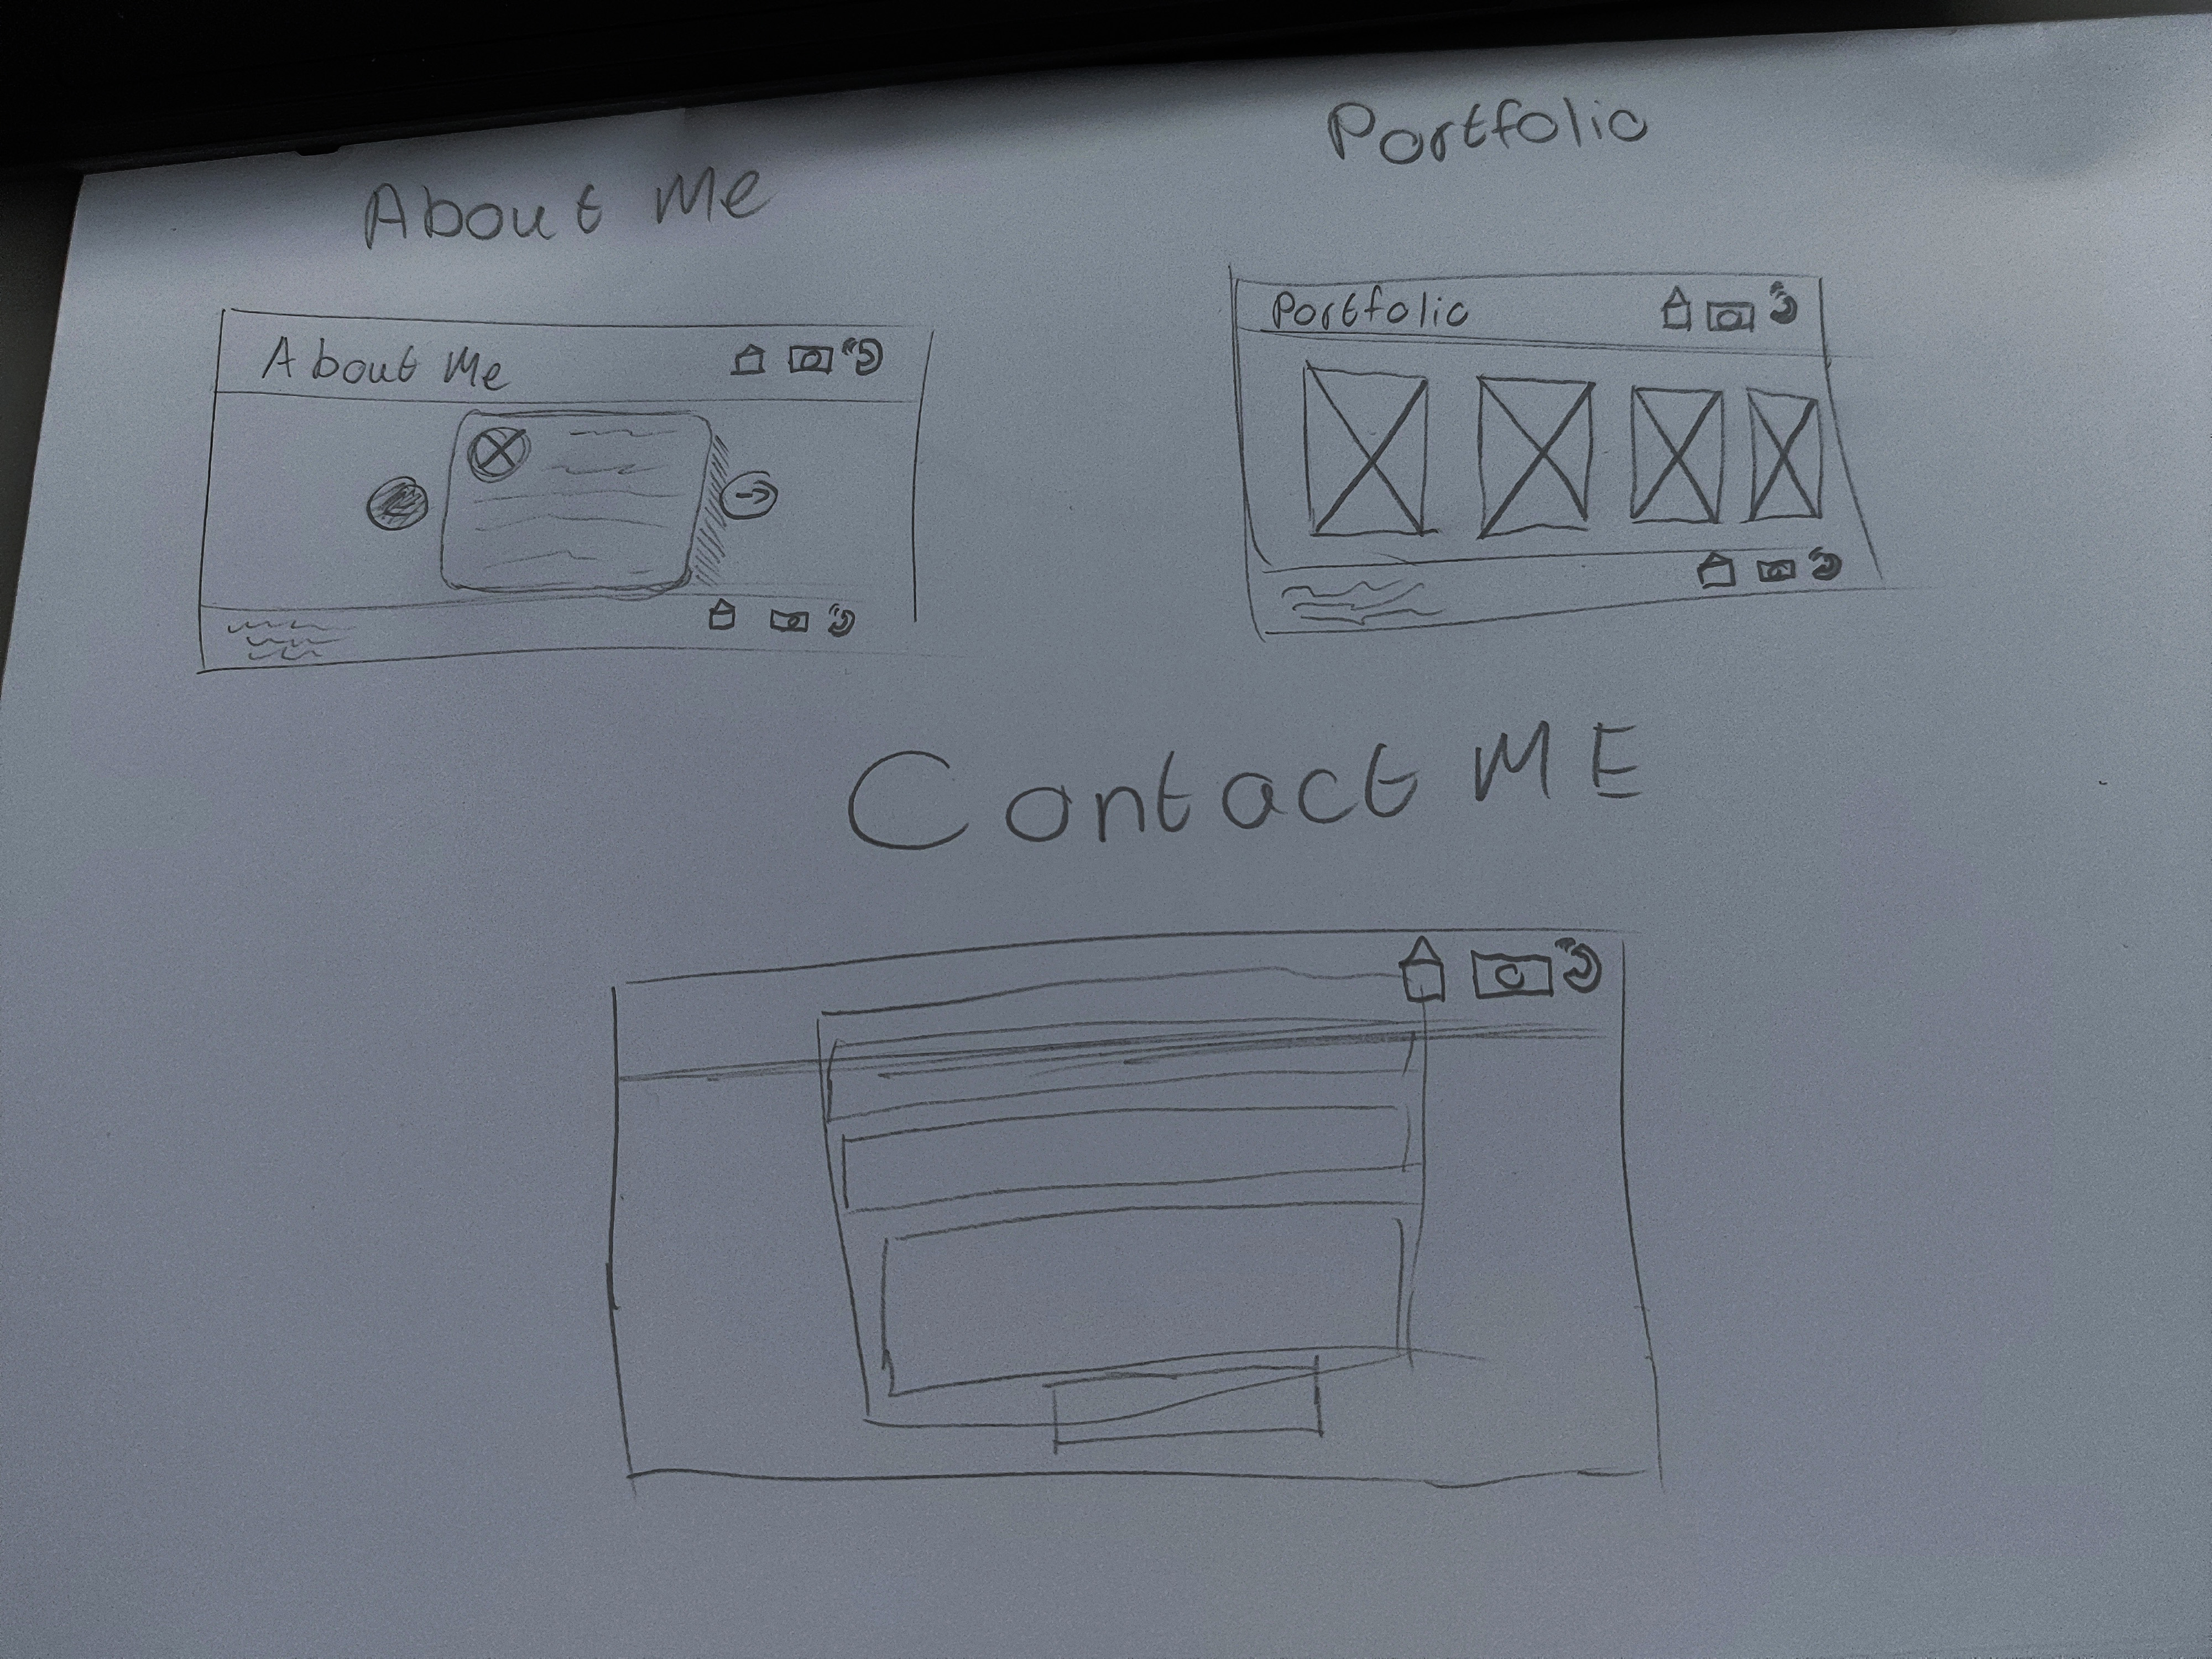 About Me
Portfolio
About Me
Portfolio
Contact ME